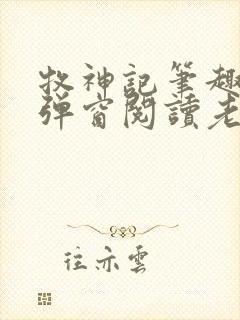 牧神記筆趣
彈窗閱讀老
往亦雲